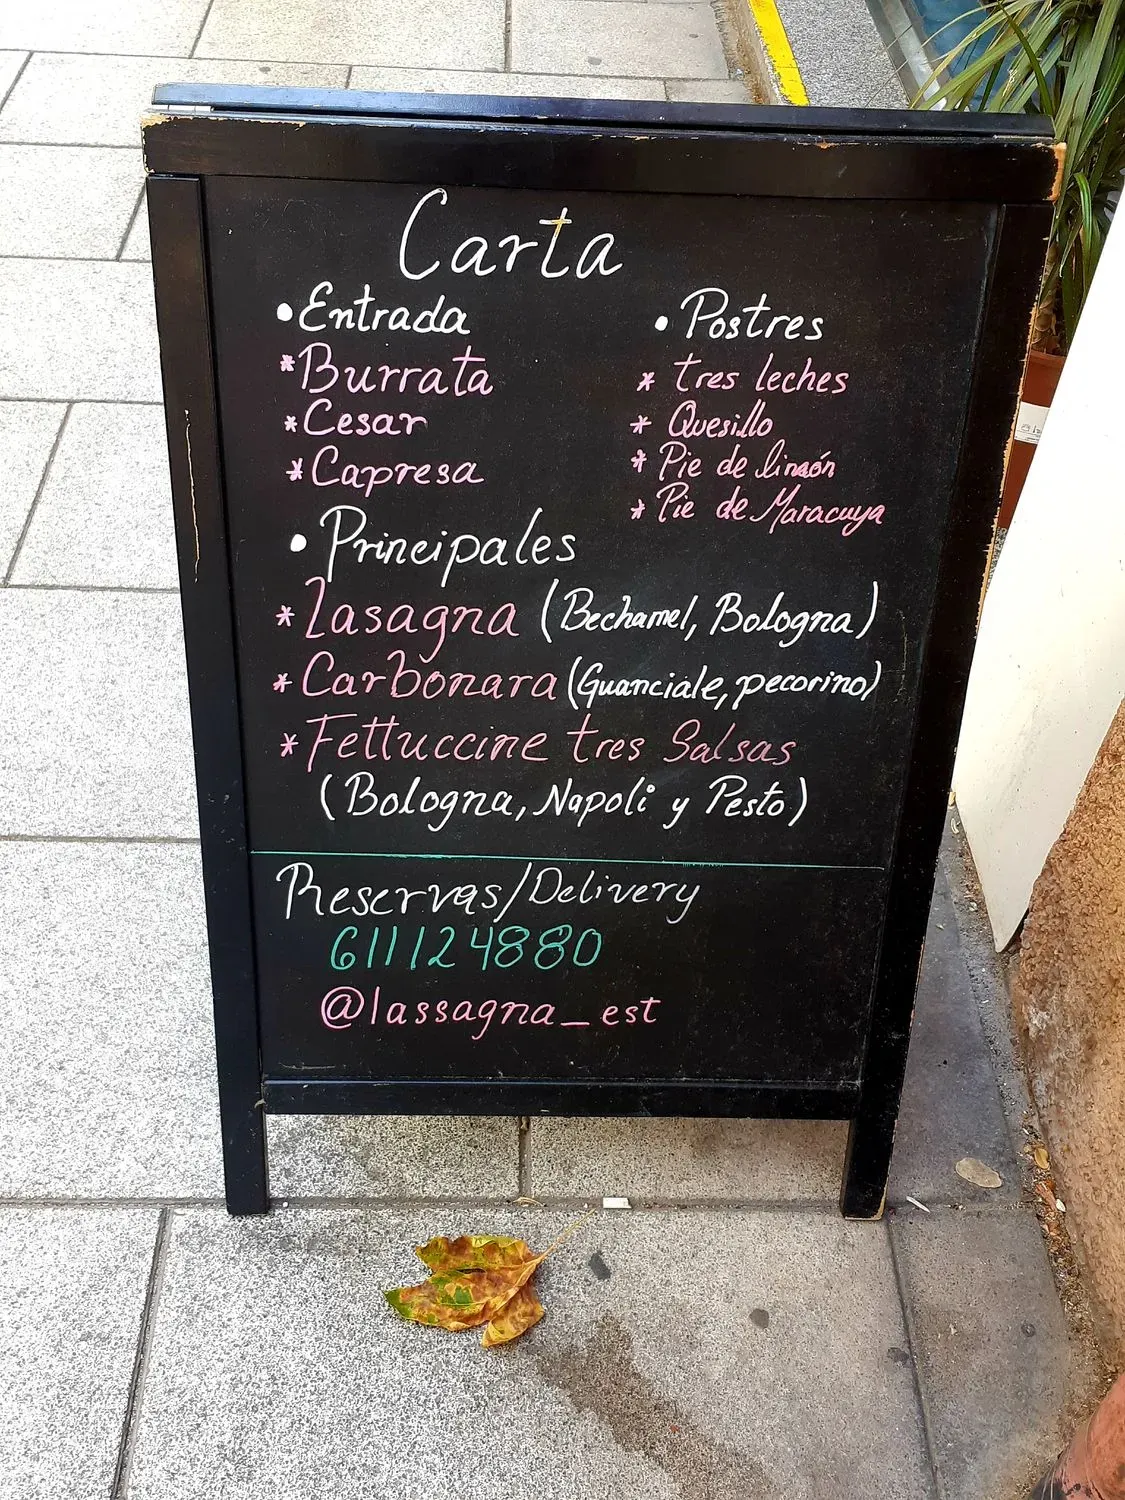 Carta
• Entrada
* Burrata
* Cesar
* Capresa
• Principales
* Lasagna (Bechamel, Bologna)
* Carbonara (Guanciale, pecorino)
* Fettuccine tres Salsas
(Bologna, Napoli y Pesto)
• Postres
* tres leches
* Quesillo
* Pie de limón
* Pie de Maracuya
Reservas/Delivery
611124880
@lassagna_est